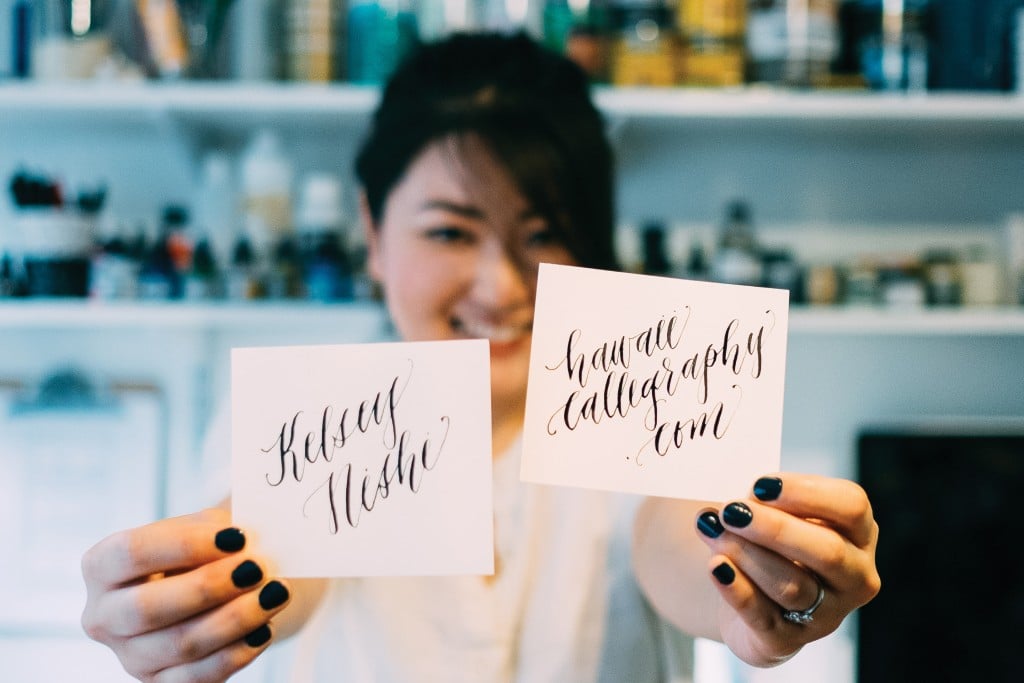 Kelsey
Nishi
hawaii
calligraphy
.com